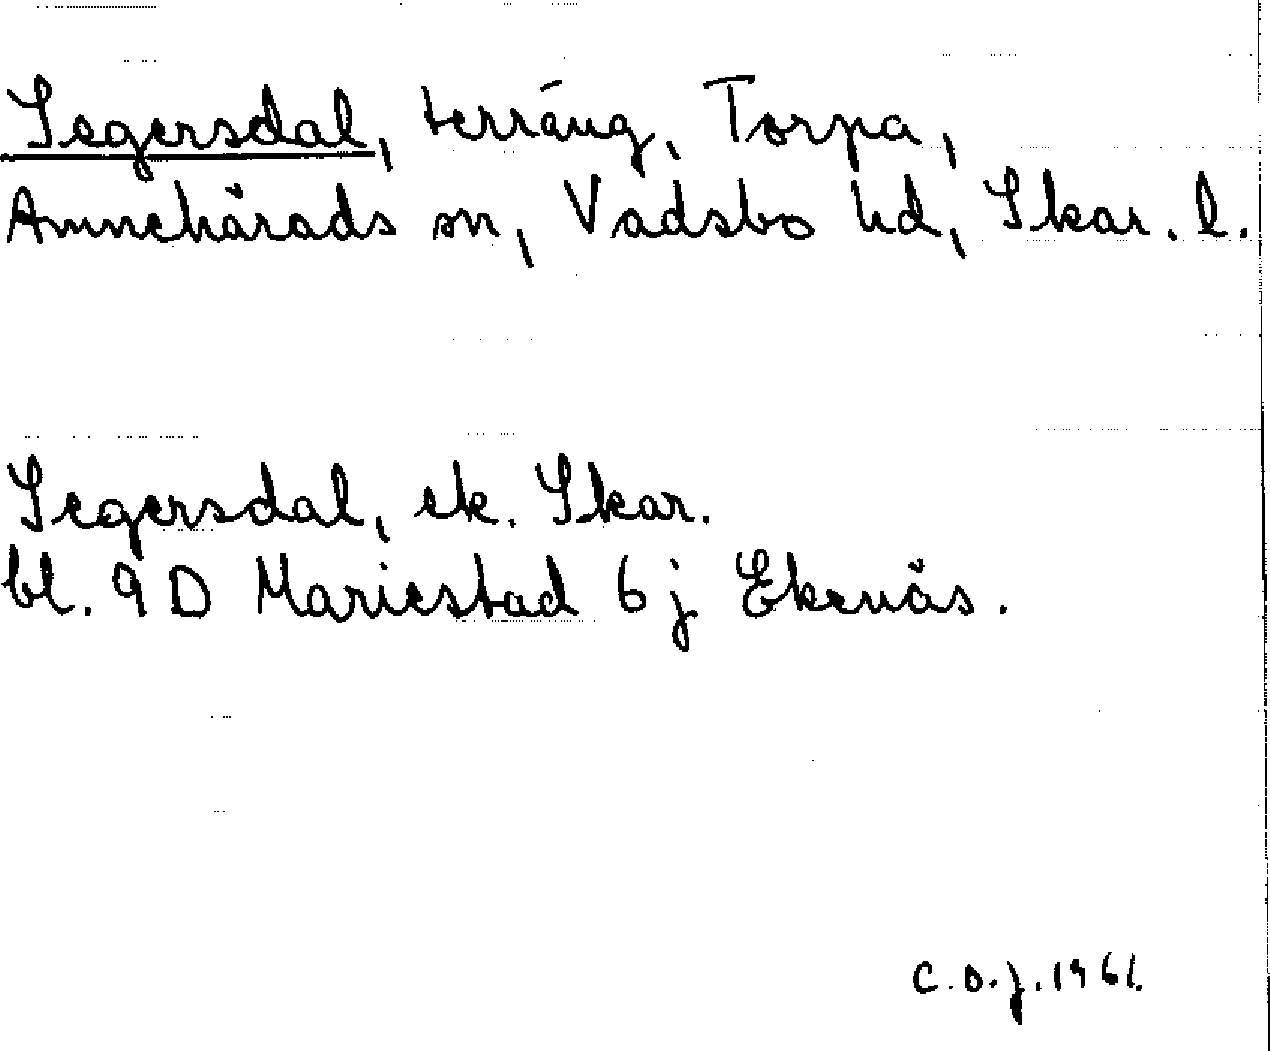 Segersdal, terräng, Torpa,
Amnehärads sn, Vadsbo hd, Skar. l.
Segersdal, ek. Skar.
bl. 9D Mariestad 6 j Ekenäs.
C.O.J. 1961.